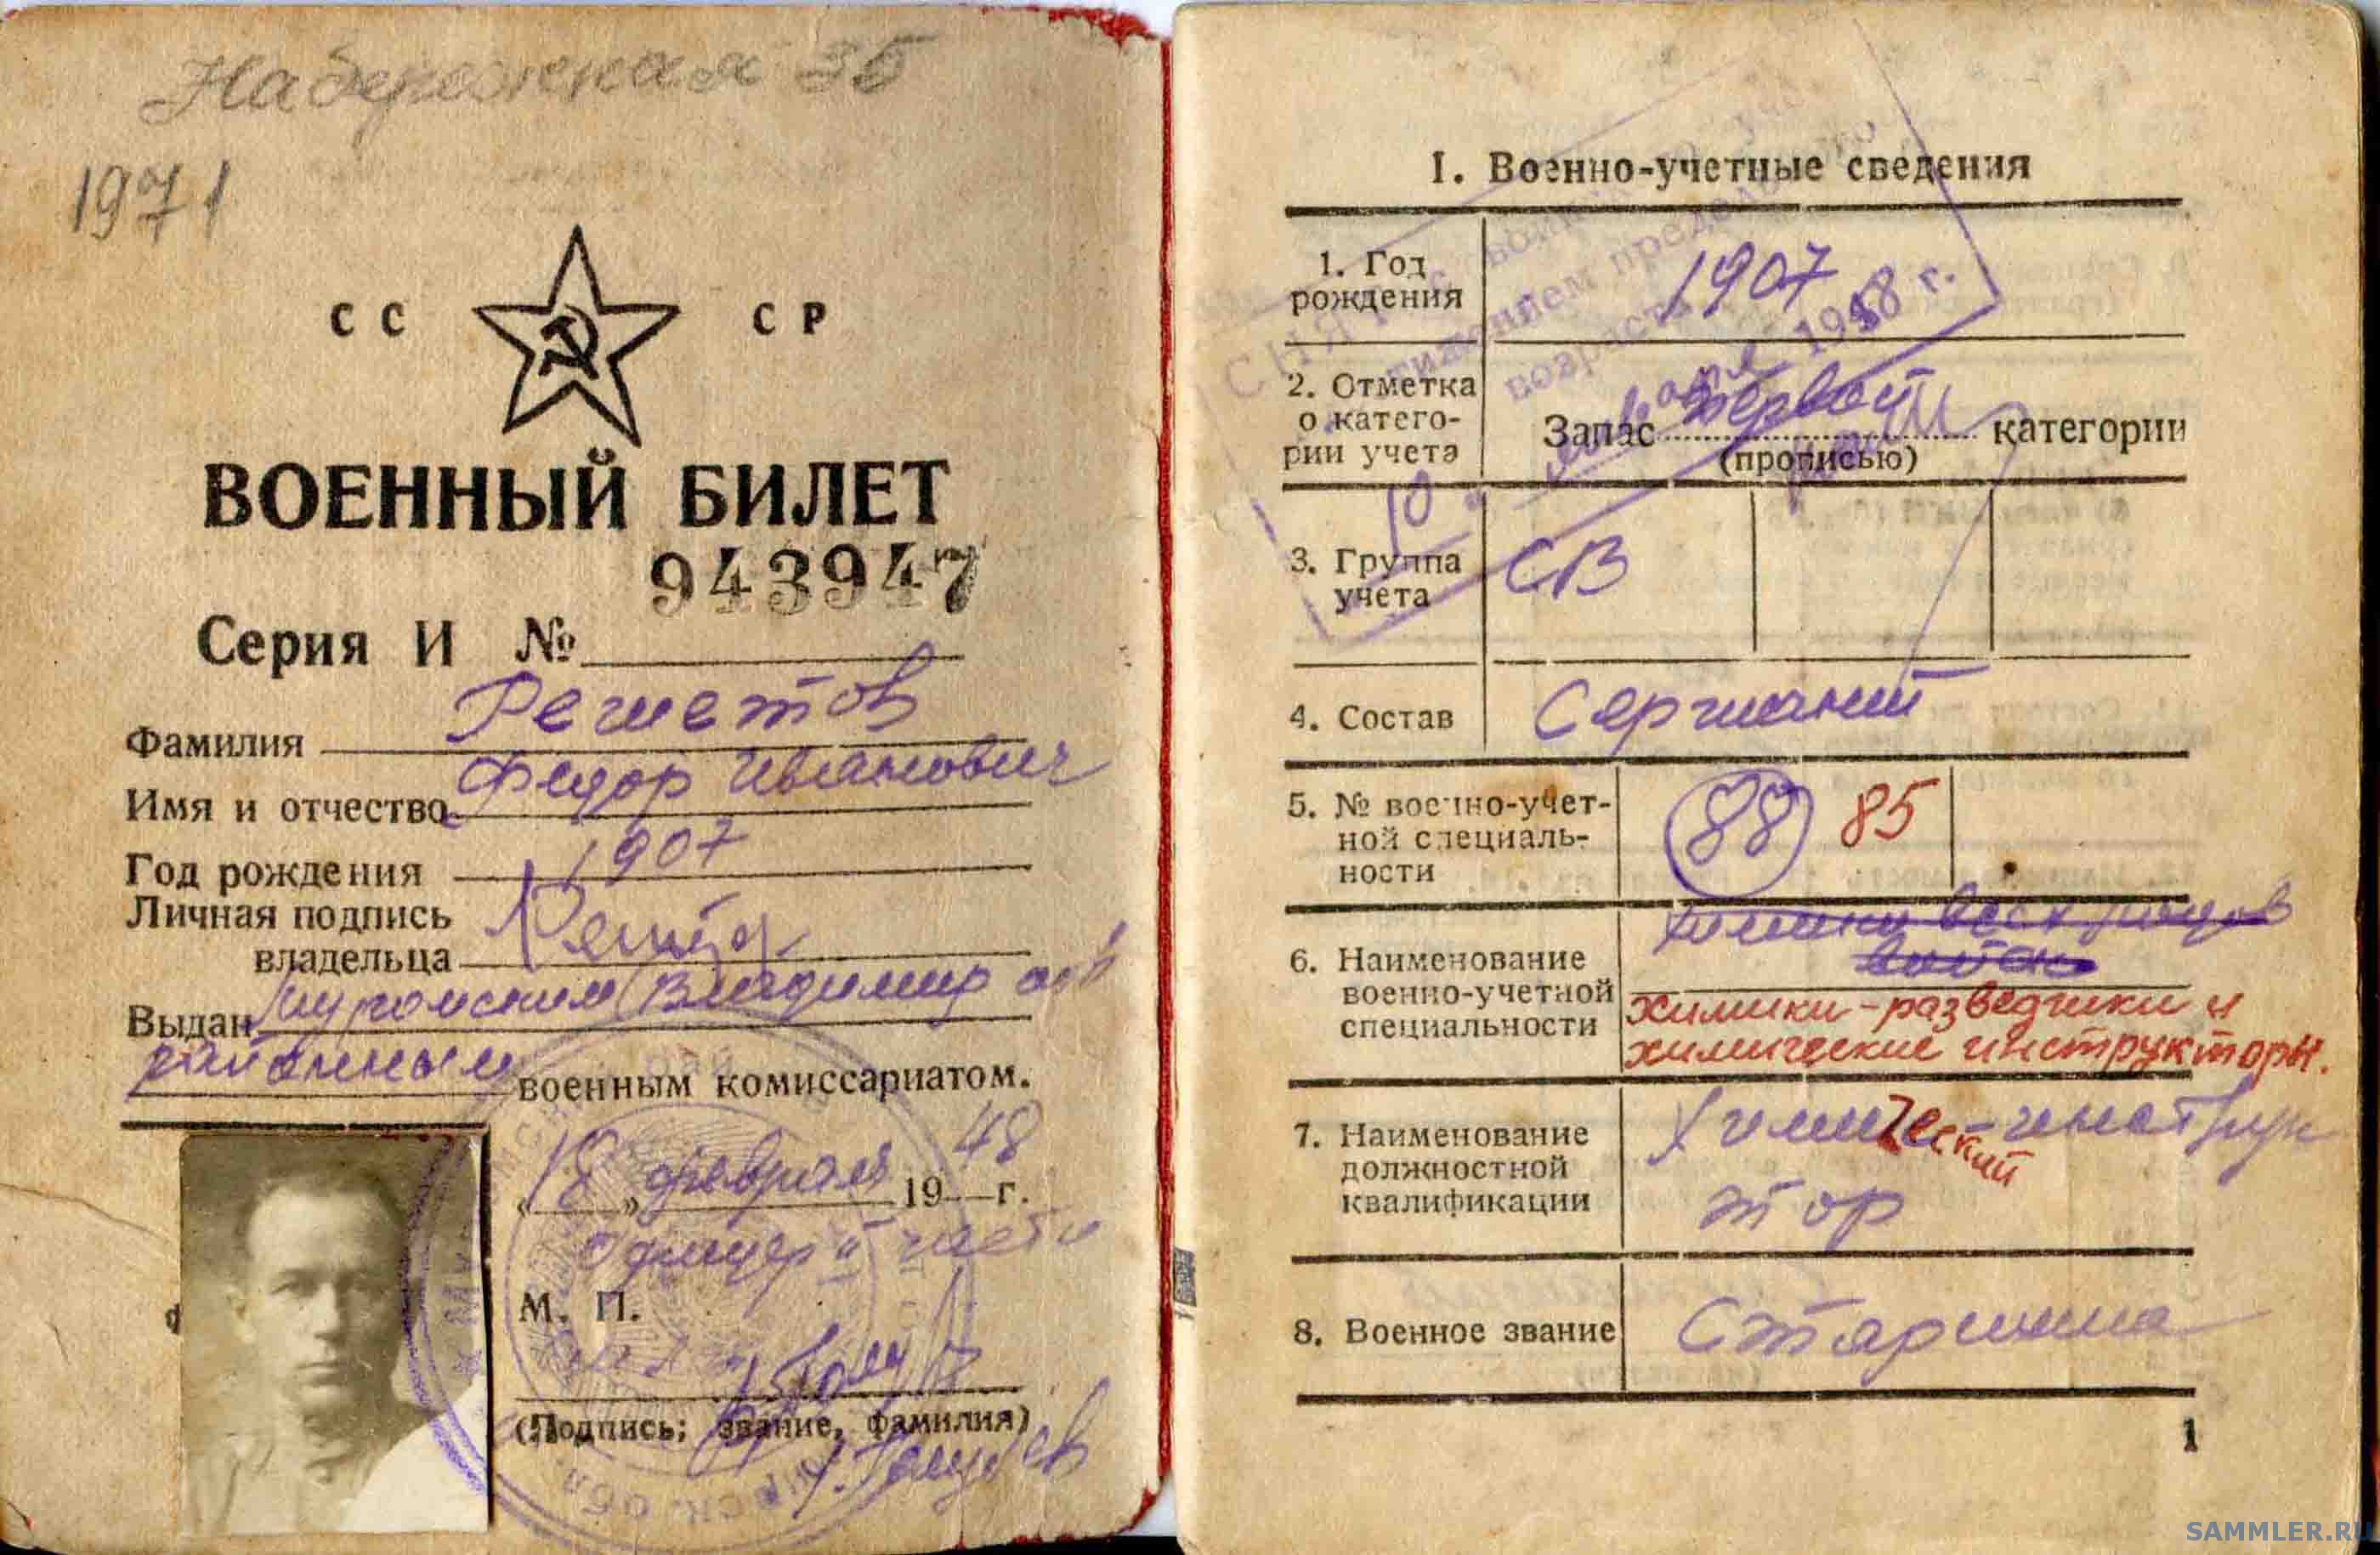 Набережная 35
1971
СС СР
ВОЕННЫЙ БИЛЕТ
943947
Серия И №
Фамилия Решетов
Имя и отчество Федор Иванович
Год рождения 1907
Личная подпись
владельца
Выдан Муромским Владимир обл
районным военным комиссариатом.
«18» февраля 1948 г.
части
М. П.
(Подпись, звание, фамилия)
I. Военно-учетные сведения
1. Год
рождения
1907
1958 г.
2. Отметка
о катего-
рии учета
Запас первой категории
(прописью)
10 января
3. Группа
учета
СВ
4. Состав
Сержаний
5. № военно-учет-
ной специаль-
ности
88 85
6. Наименование
военно-учетной
специальности
химики всех родов
войск
химики-разведчики и
химические инструкторы.
7. Наименование
должностной
квалификации
Химический-инструк
тор
8. Военное звание
Старшина
1
SAMMLER.RU